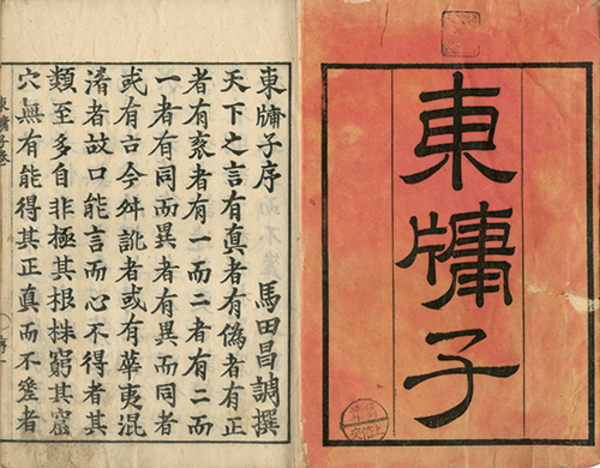 東牅子
東牅子序　馬田昌調撰
天下之言有真者有偽者有正
者有衺者有一而二者有二而
一者有同而異者有異而同者
或有古今舛訛者或有華夷混
淆者故口能言而心不得者其
類至多自非極其根株窮其窟
穴無有能得其正真而不差者
東牅子卷
序一